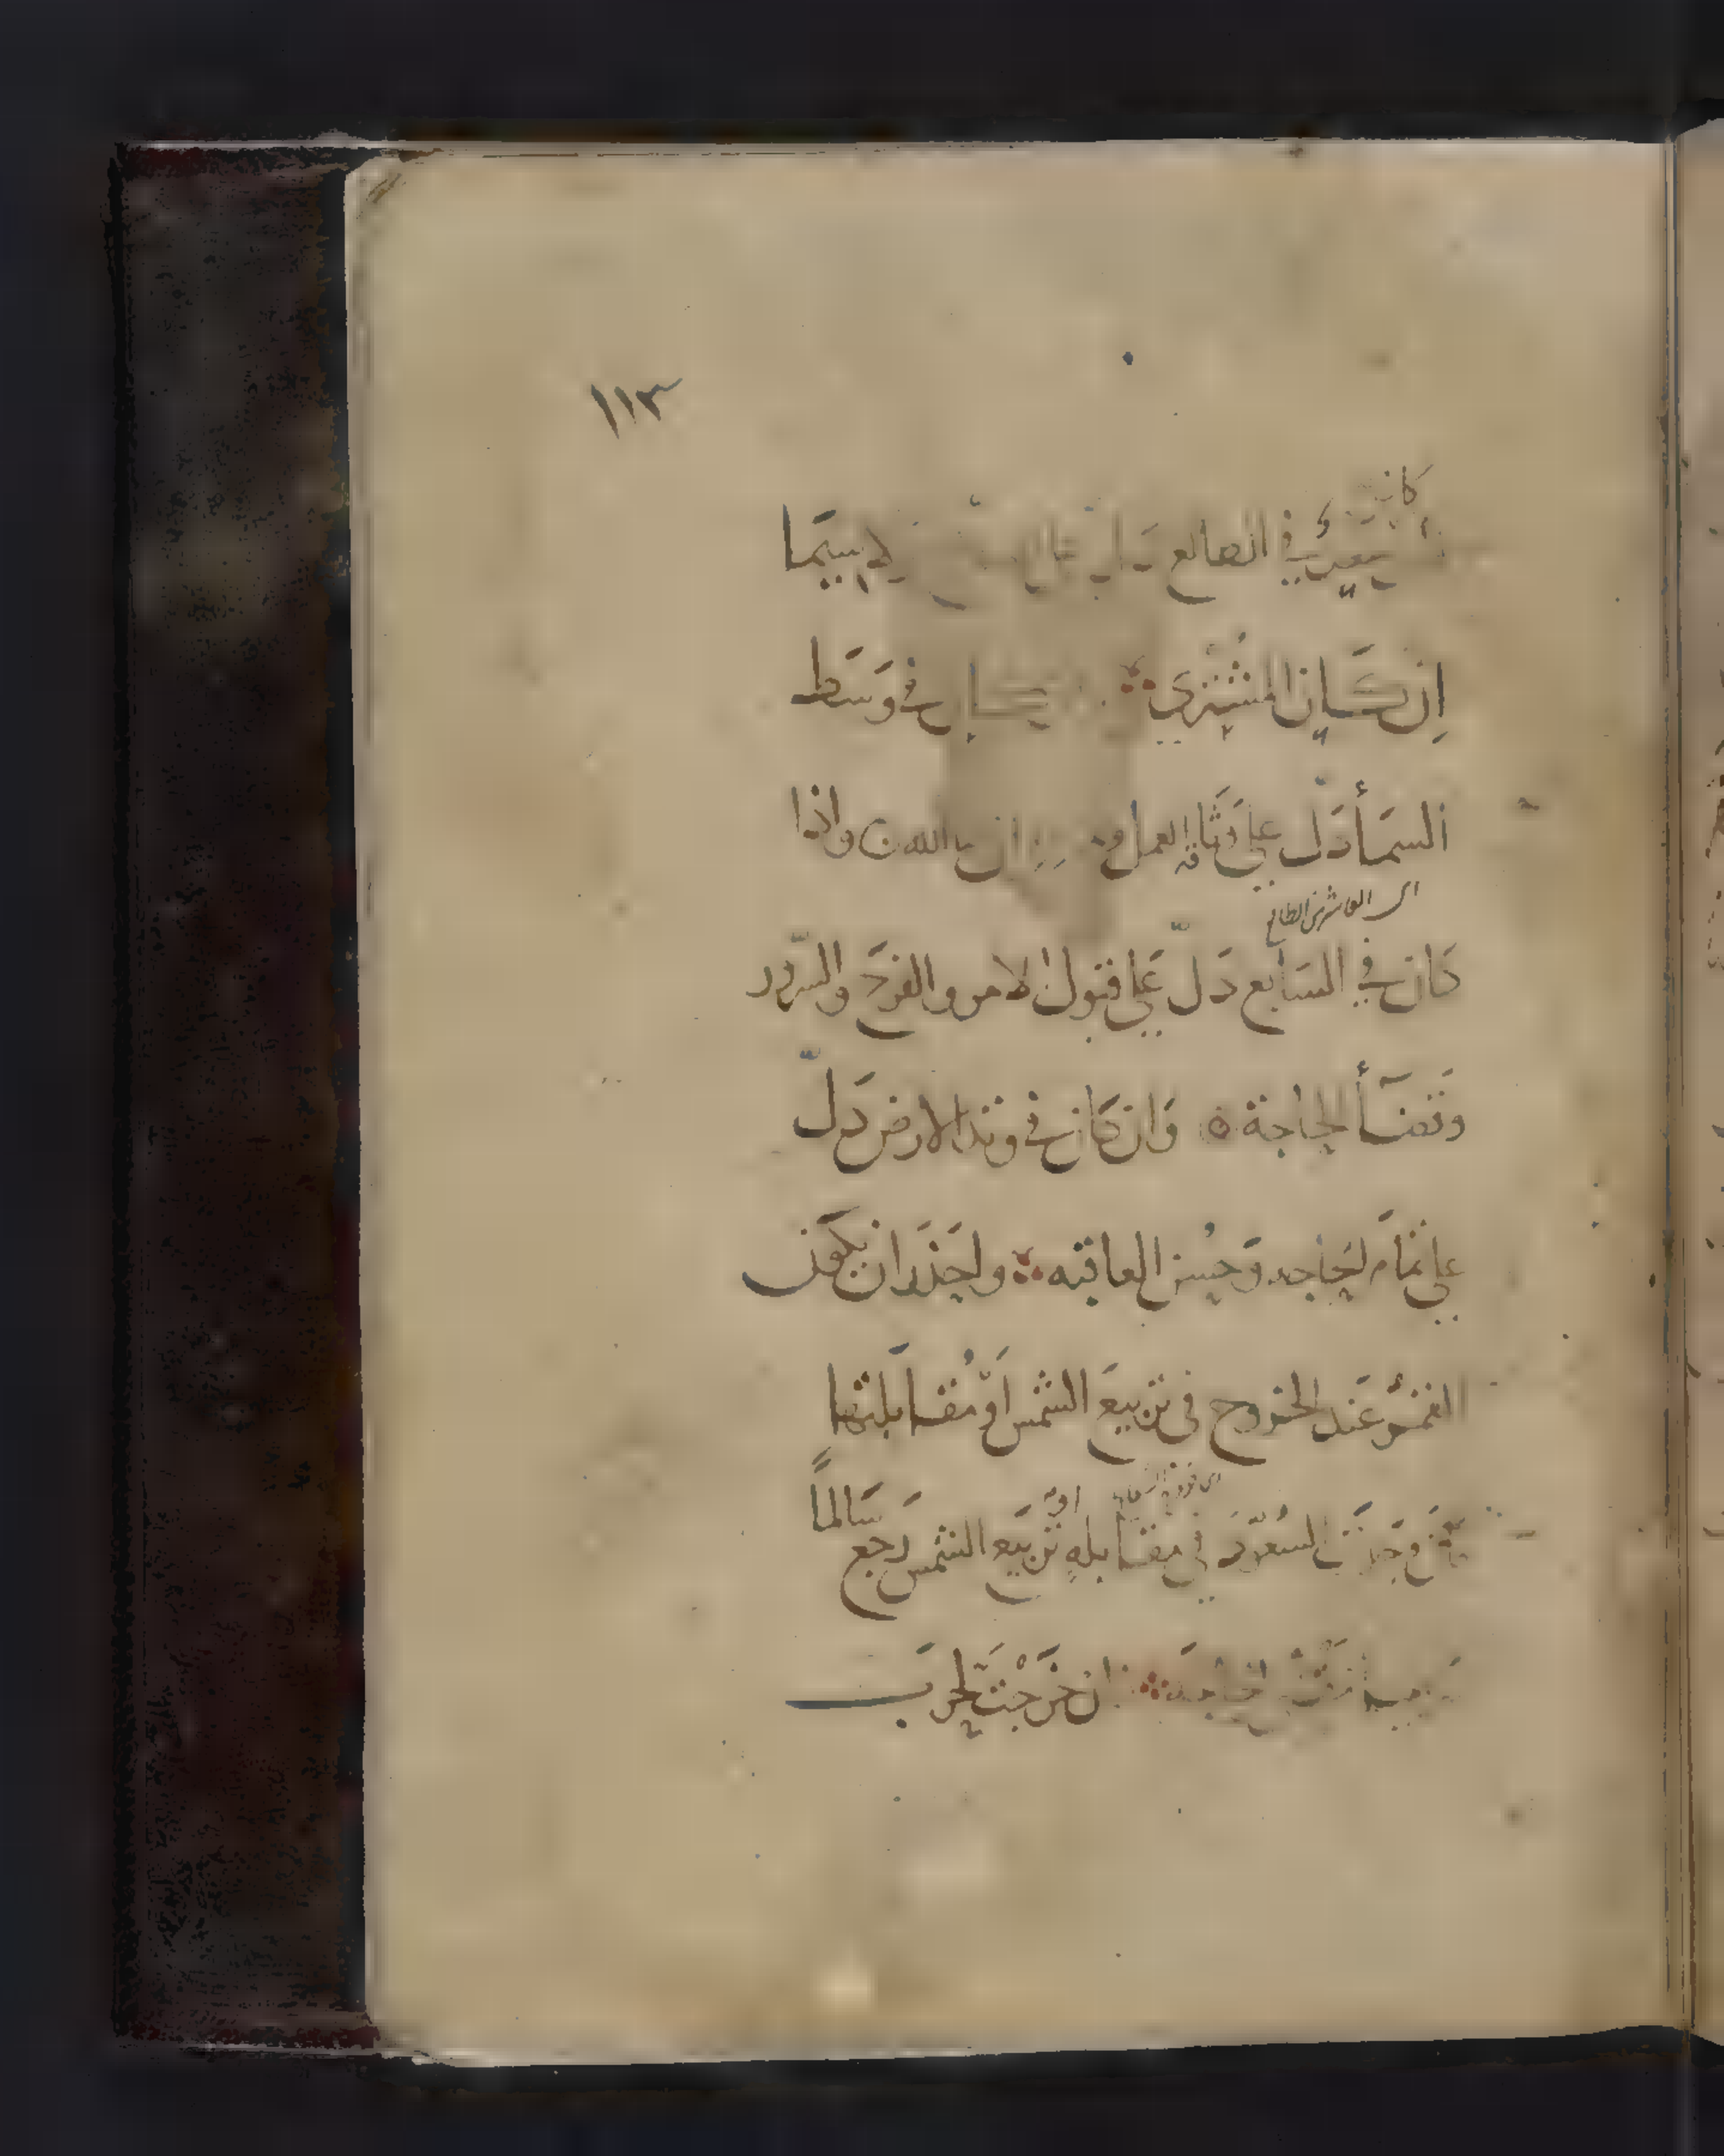 ١١٣
كان
في الطالع لا سيما
اِن كَان المُشتري كان في وَسَط
السمأ دَل على وَثَاقه العمل ان سا الله واذا
اى العاشر من الطالع
كان في السَابع دَلّ عَلى قبول الامر والفرَح والسّرور
وقضَأ الحاجة ۞ وَان كان في وتد الارض دَلّ
على تمَام الحاجه وَحُسن العاقبه ؞ وليَحذَر ان يكَون
القمر عَند الخروج في تربيع الشمس اَوْ مُقابلتها
وَجدت السُعود في مقابلهِ اوْ تربَيع الشمس رَجع سَالماً
الحاجَة ؞ ان خَرَجْتَ لِحَرب